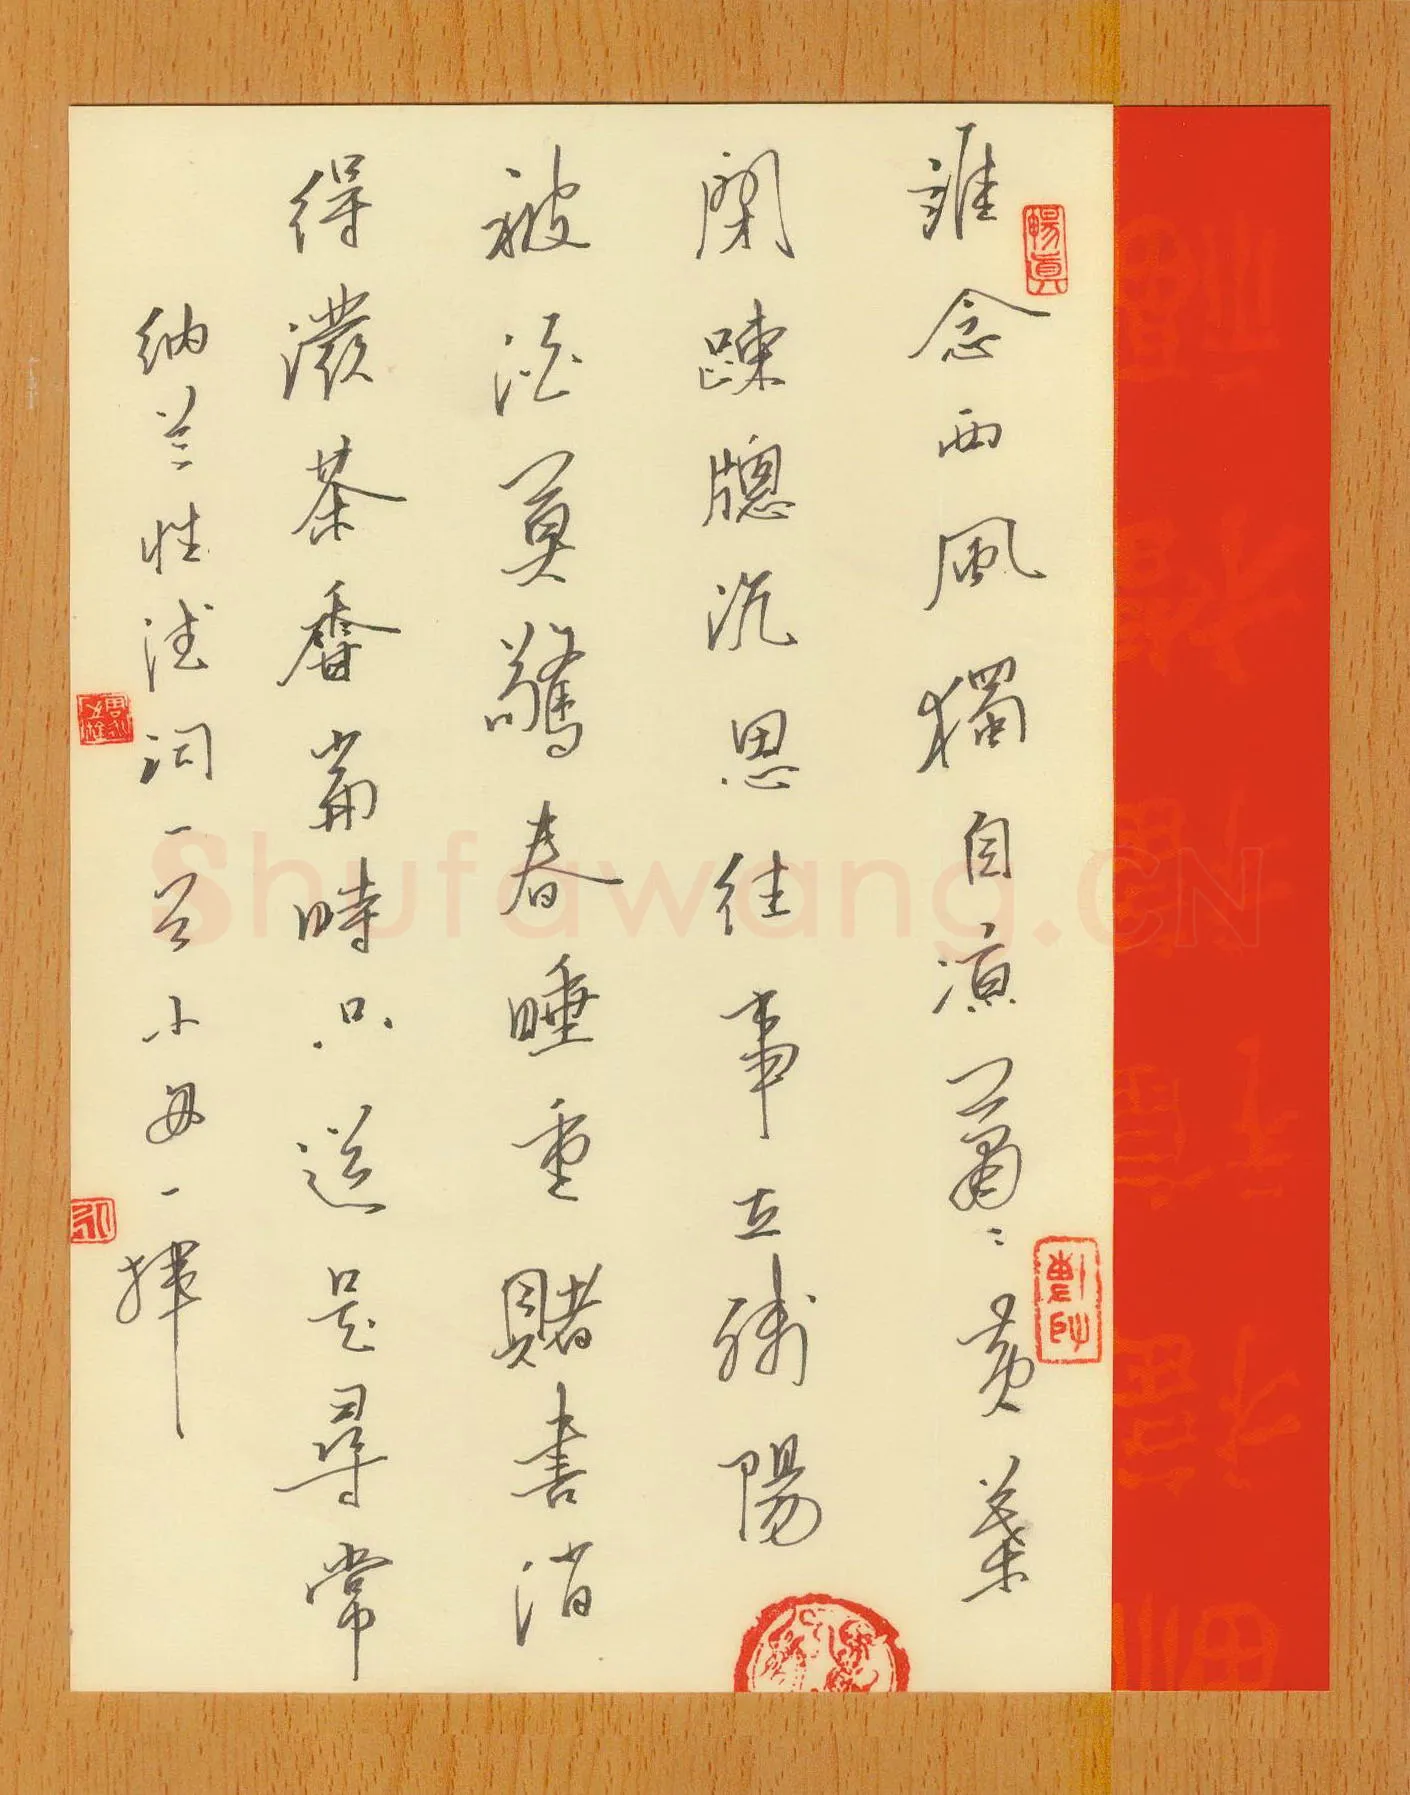 誰念西風獨自涼蕭〻黃葉
閉踈牕沉思往事立殘陽
被酒莫驚春睡重賭書消
得潑茶香當時只道是尋常
納兰性德词一首小一揮
暢真
Shufawang.CN